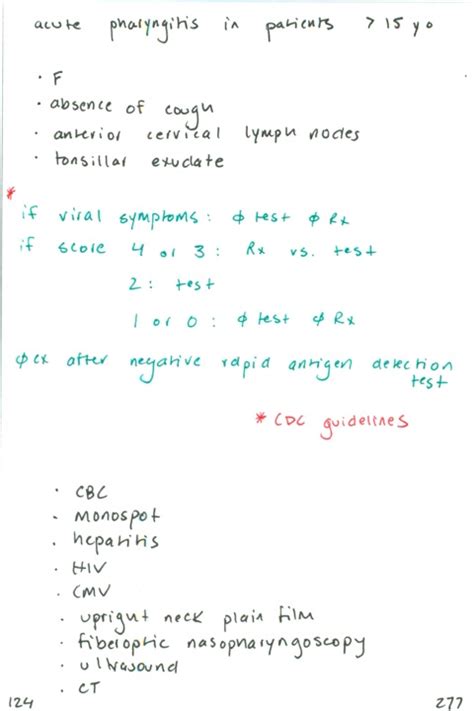 acute pharyngitis in patients > 15 yo
· F
· absence of cough
· anterior cervical lymph nodes
· tonsillar exudate
*
if viral symptoms: ϕ test ϕ Rx
if score 4 or 3: Rx vs. test
2: test
1 or 0: ϕ test ϕ Rx
ϕ cx after negative rapid antigen detection
test
* CDC guidelines
· CBC
· monospot
· hepatitis
· HIV
· CMV
· upright neck plain film
· fiberoptic nasopharyngoscopy
· ultrasound
· CT
124 277